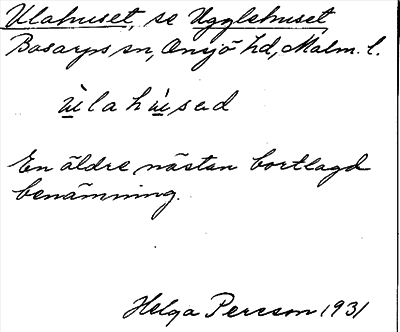 Ulahuset, se Ugglehuset
Bosarps sn, Onsjö hd, Malm. l.
ùlahùsəd
En äldre nästan bortlagd
benämning.
Helga Persson 1931